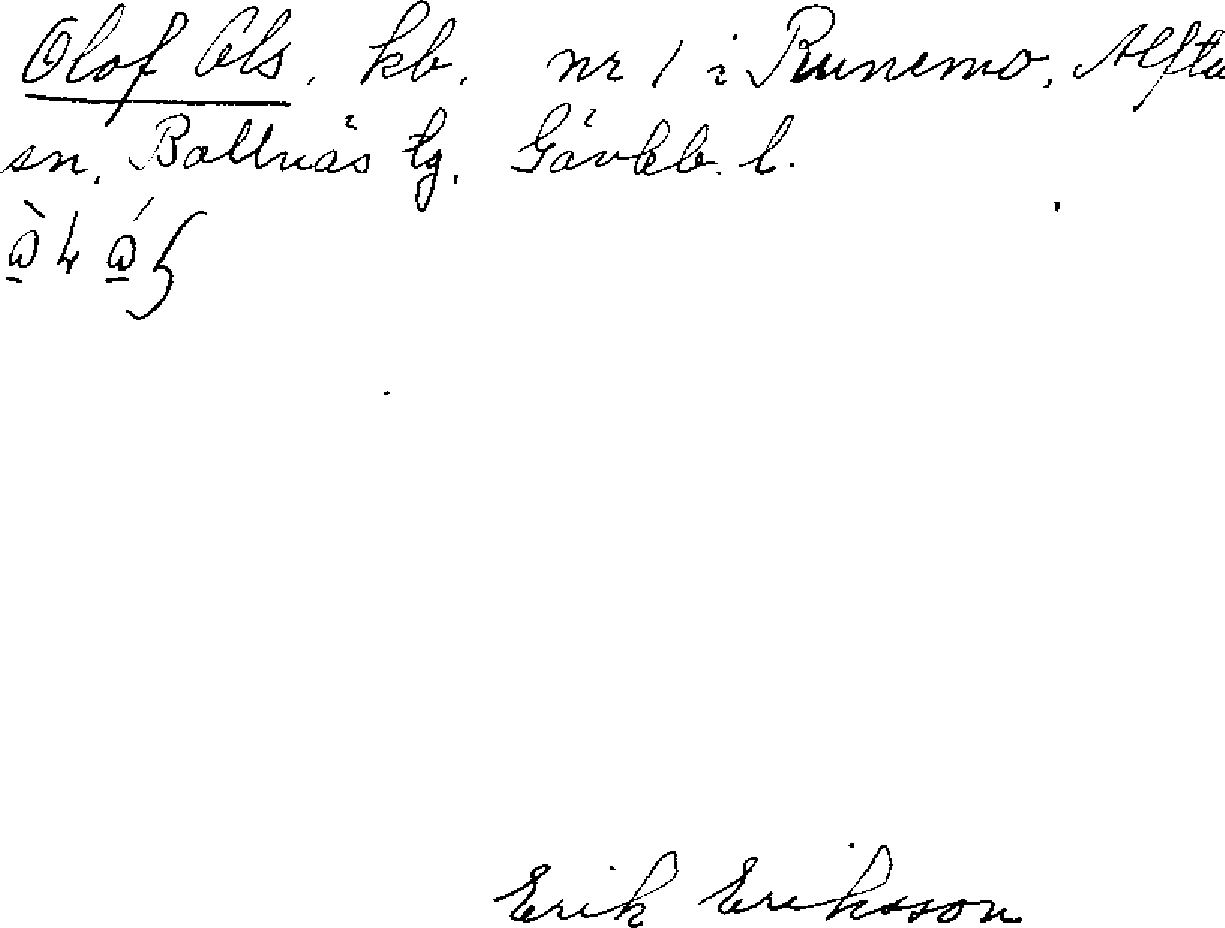 Olof Ols, kb. nr 1 i Runemo, Alfta
sn, Bollnäs tg, Gävleb. l.
Erik Eriksson